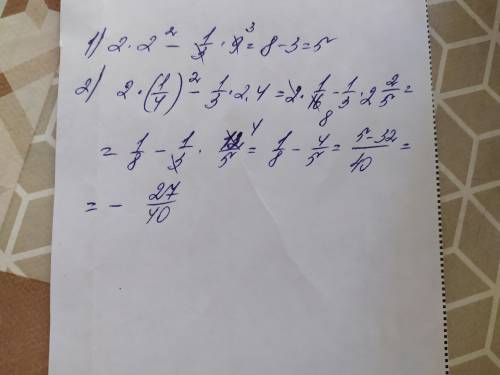 1) 2·2² - 1/3 · 9³ = 8-3=5
2) 2·(1/4)² - 1/3·2,4 = 2·1/16 8 - 1/3·2 2/5 =
= 1/8 - 1/3 · 12/5 4 = 1/8 - 4/5 = 5-32/40 =
= - 27/40